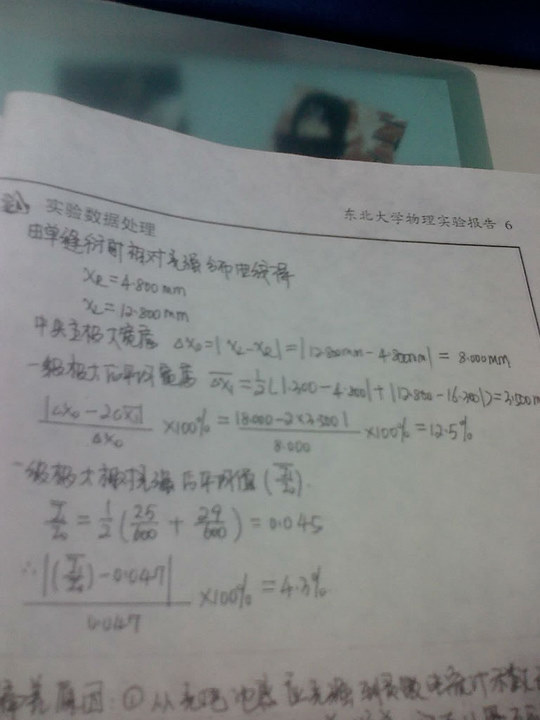 东北大学物理实验报告 6
实验数据处理
由单缝衍射相对光强分布曲线得
x_R = 4.800 mm
x_L = 12.800 mm
中央主极大宽度 Δx₀ = | x_L - x_R | = | 12.800mm - 4.800mm | = 8.000mm
一级极大的平均宽度 \overline{Δx₁} = 1/2 (|1.300 - 4.800| + |12.800 - 16.300|) = 3.500m
|Δx₀ - 2\overline{Δx₁}| / Δx₀ ×100% = |8.000 - 2×3.500| / 8.000 ×100% = 12.5%
一级极大相对光强的平均值
= 1/2 (25/600 + 29/600) = 0.045
∴ - 0.047| / 0.047 ×100% = 4.3%
原因: ① 从光电